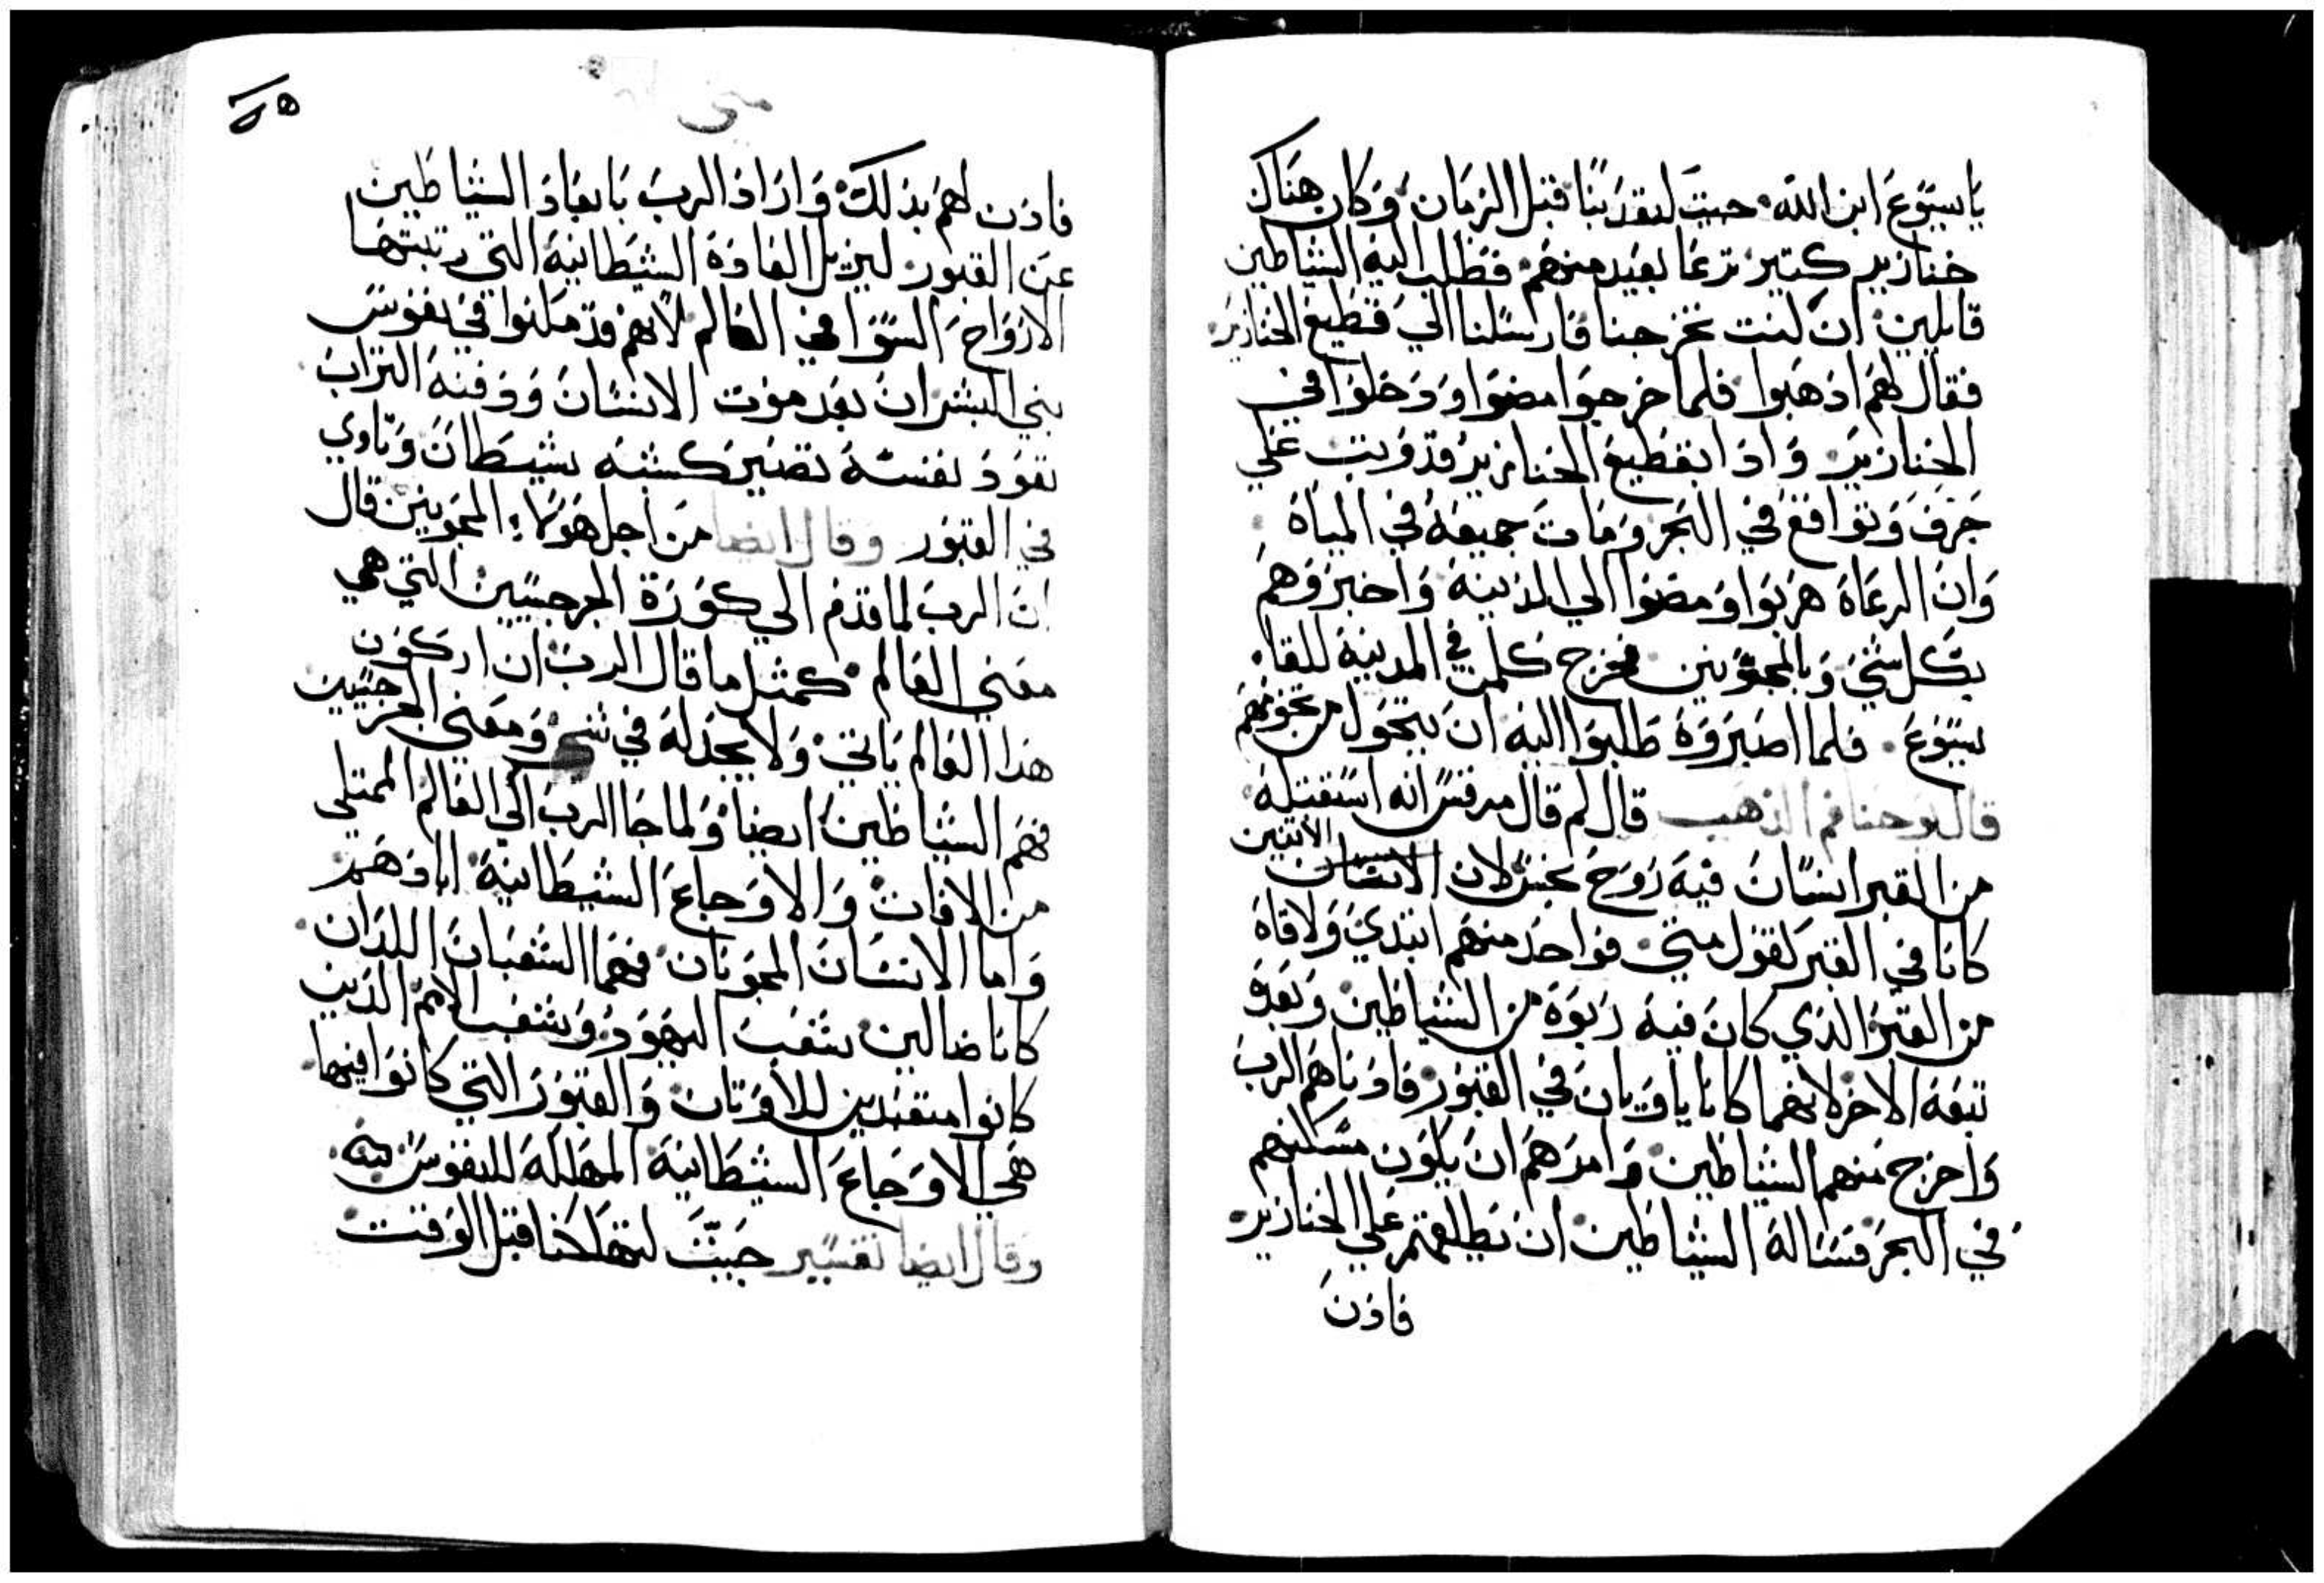 يا يسوع ابن الله حييت لتعذبنا قبل الزمان وكان هناك
خنازير كتير ترعا بعيد منهم فطلب اليه الشياطين
قايلين ان كنت تخرجنا فارسلنا الي قطيع الخنازير
فقال لهم ادهبوا فلما خرجوا مضوا ودخلوا في
الخنازير واذا بقطيع الخنازير قد وتب علي
جرف وتواقع في البحر ومات جميعه في المياه
وان الرعاه هربوا ومضوا الي المدينه واخبروهم
بكل شي وبالمجنونين فخرج كلمن في المدينه للقا
يسوع فلما ابصروه طلبوا اليه ان يتحول من تخومهم
قال يوحنا فم الذهب قال لم قال مرقس انه استقبله
من القبر انسان فيه روح نجس لان الانسان الاتنين
كانا في القبر كقول متي فواحد منهم ابتدي ولاقاه
من القبر الذي كان فيه ربوة من الشياطين وبعده
تبعه الاخر لانهما كانا ياويان في القبور فاوناهم الرب
واخرج منهم الشياطين وامرهم ان يكون مسكنهم
في البحر فساله الشياطين ان يطلقهم علي الخنازير
فاذن
متي
٤٥
فاذن لهم بذلك واراد الرب بابعاد الشياطين
عن القبور ليزيل العادة الشيطانية التي رتبتها
الارواح السوا في العالم لانهم قد مكنوا في نفوس
بني البشر ان بعد موت الانسان ودفنه التراب
تعود نفسه تصير كشبه شيطان وتاوي
في القبور وقال ايضا من اجل هولاء المجنونين قال
ان الرب لما قدم الي كورة الجرجسيين التي هي
معني العالم كمثل ما قال الرب ان اركون
هذا العالم ياتي ولا يجد له في شي ومعني الجرجسيين
فهم الشياطين ايضا ولما جا الرب الي العالم الممتلي
من الافات والاوجاع الشيطانية ابادهم
واما الانسان المجنونان فهما الشعبان اللدان
كانا ضالين شعب اليهود وشعب الامم الذين
كانوا متعبدين للاوتان والقبور التي كانوا فيها
هي الاوجاع الشيطانية المهلكه للنفوس منه
وقال ايضا تفسير جييت لتهلكنا قبل الوقت